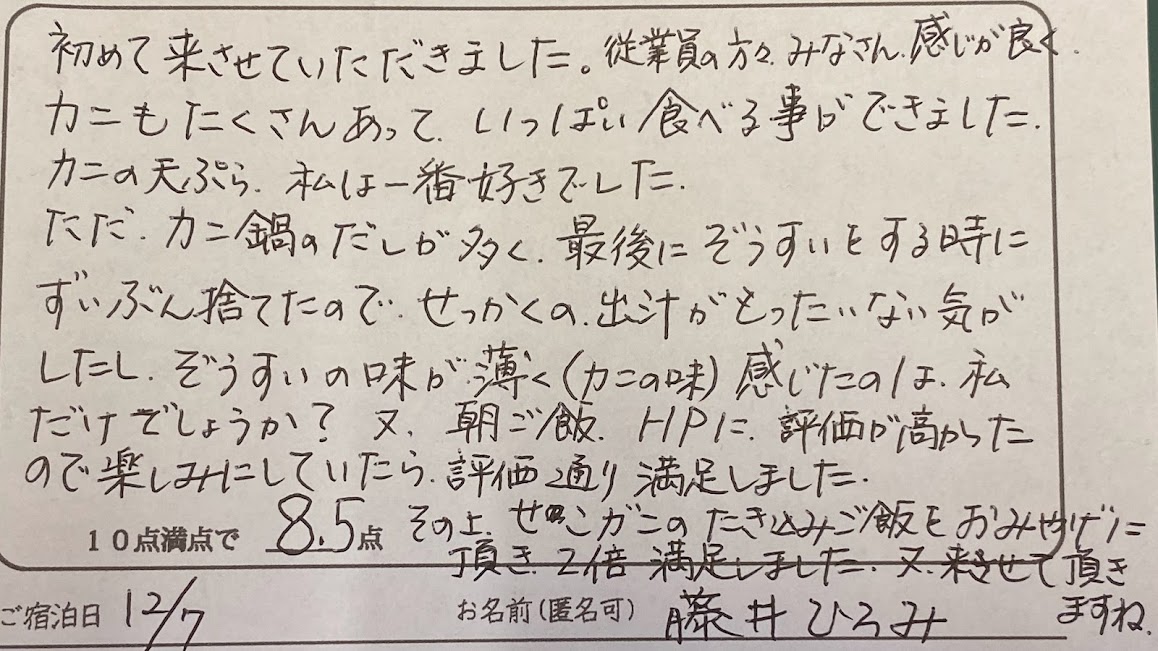 初めて来させていただきました。従業員の方々、みなさん、感じが良く、
カニもたくさんあって、いっぱい食べる事ができました。
カニの天ぷら、私は一番好きでした。
ただ、カニ鍋のだしが多く、最後にぞうすいをする時に
ずいぶん捨てたので、せっかくの、出汁がもったいない気が
したし、ぞうすいの味が、薄く(カニの味)感じたのは、私
だけでしょうか?又、朝ご飯、HPに、評価が高かった
ので楽しみにしていたら、評価通り満足しました。
10点満点で 8.5点 その上、せこがにのたき込みご飯をおみやげに
頂き、2倍満足しました。又、来させて頂き
ますね。
ご宿泊日 12/7 お名前(匿名可) 藤井ひろみ